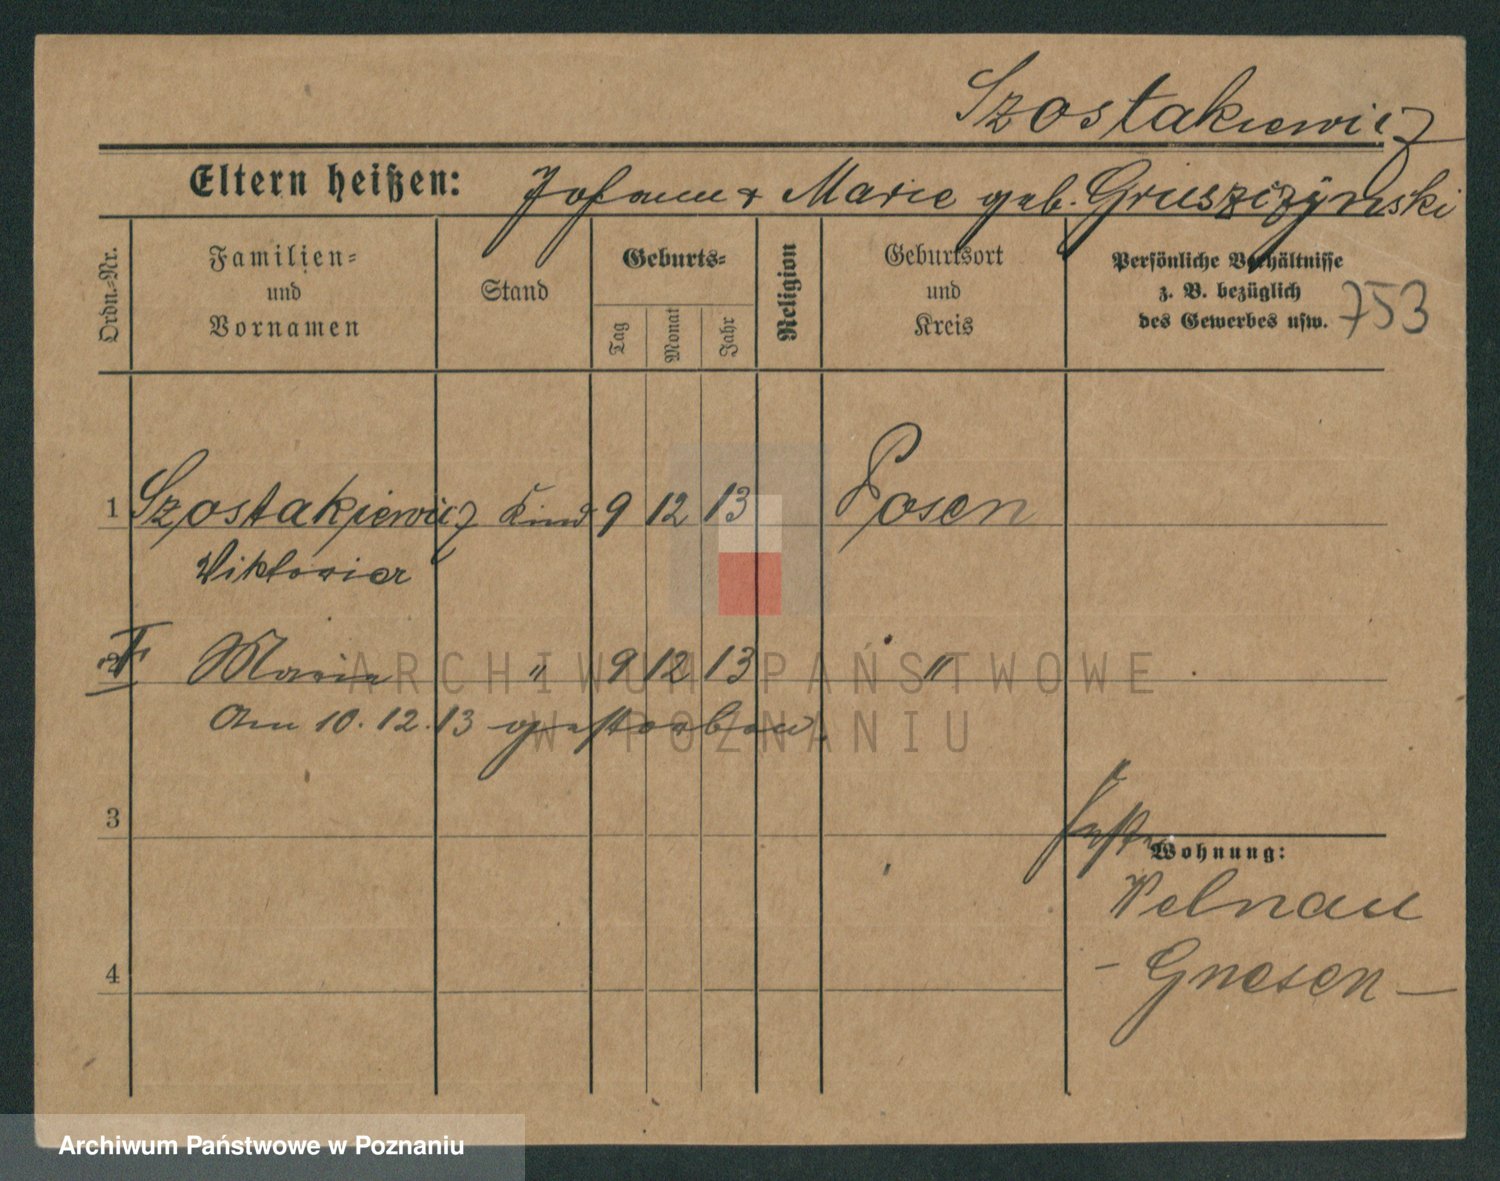 Szostakiewicz
Eltern heißen: Johann & Marie geb. Gruszczynski
Ordn.-Nr.
Familien-
und
Vornamen
Stand
Geburts-
Tag
Monat
Jahr
Religion
Geburtsort
und
Kreis
Persönliche Verhältnisse
z. B. bezüglich
des Gewerbes usw.
753
1 Szostakiewicz Kind 9 12 13 Posen
Viktoria
2 Maria " 9 12 13 "
Am 10.12.13 gestorben.
3
Wohnung:
Welnau
- Gnesen -
4
ARCHIWUM PAŃSTWOWE
W POZNANIU
Archiwum Państwowe w Poznaniu